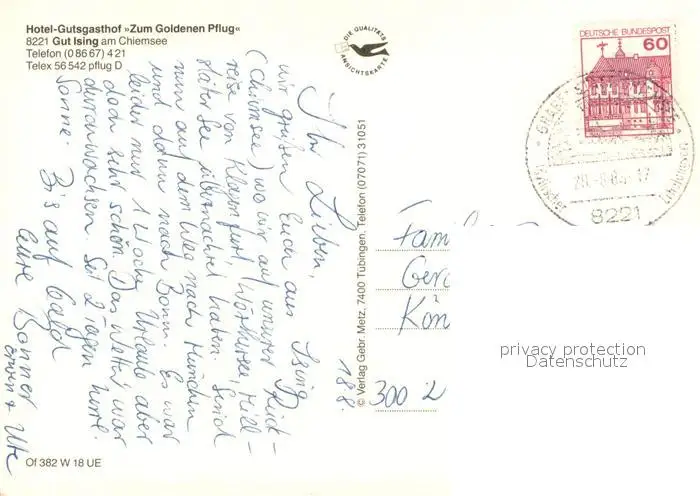 Hotel-Gutsgasthof »Zum Goldenen Pflug«
8221 Gut Ising am Chiemsee
Telefon (0 86 67) 4 21
Telex 56 542 pflug D
DIE QUALITÄTS
ANSICHTSKARTE
DEUTSCHE BUNDESPOST
60
8221
Ihr Lieben,
wir grüßen Euch aus Ising
(Chiemsee) wo wir auf unserer Rück-
reise von Klagenfurt, Wörthersee, Mill-
stätter See übernachtet haben. Sind
nun auf dem Weg nach München
und dann nach Bonn. Es war
leider nur 1 Woche Urlaub aber
doch sehr schön. Das Wetter war
durchwachsen seit 2 Tagen
Sonne. Bis auf bald
Eure Bonner
Erwin + Ute
188.
© Verlag Gebr. Metz, 7400 Tübingen, Telefon (07071) 31051
Fami
Gero
Kön
300 2
privacy protection
Datenschutz
Of 382 W 18 UE